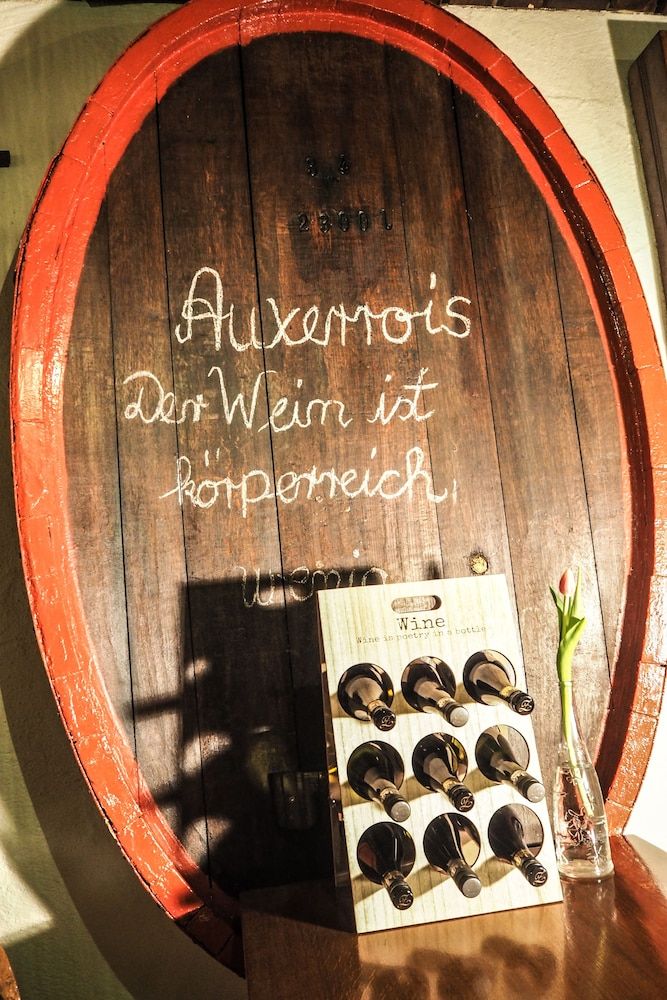 2300 l
Auxerrois
Der Wein ist
körperreich,
Wine
Wine is poetry in a bottle